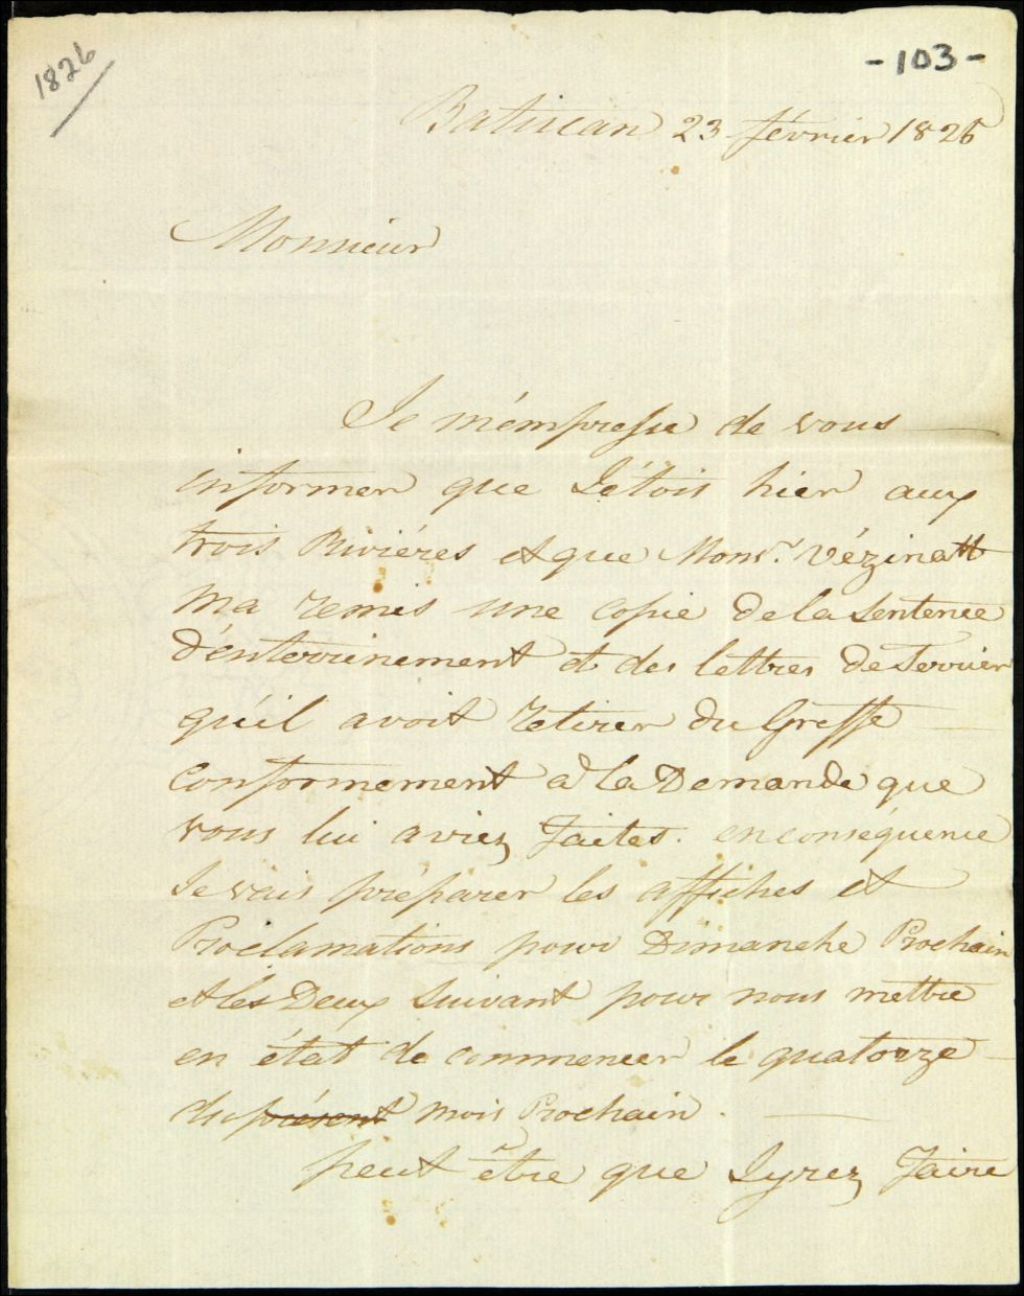 1826
-103-
Batiscan 23 février 1826
Monsieur
Je m'émpresse de vous
informer que J'étois hier aux
trois Riviéres et que Monsr. Vézina
ma remis une Copie de la Sentence
d'enterrinement et des lettres de Terrier
qu'il avoit retirer du Greffe
Conformement a la Demande que
vous lui aviez faites. en conséquence
Je vais préparer les affiches et
Proclamations pour Dimanche Prochain
et les Deux Suivant pour nous mettre
en état de commencer le quatorze
du présent mois Prochain.
peut être que Jyrez faire